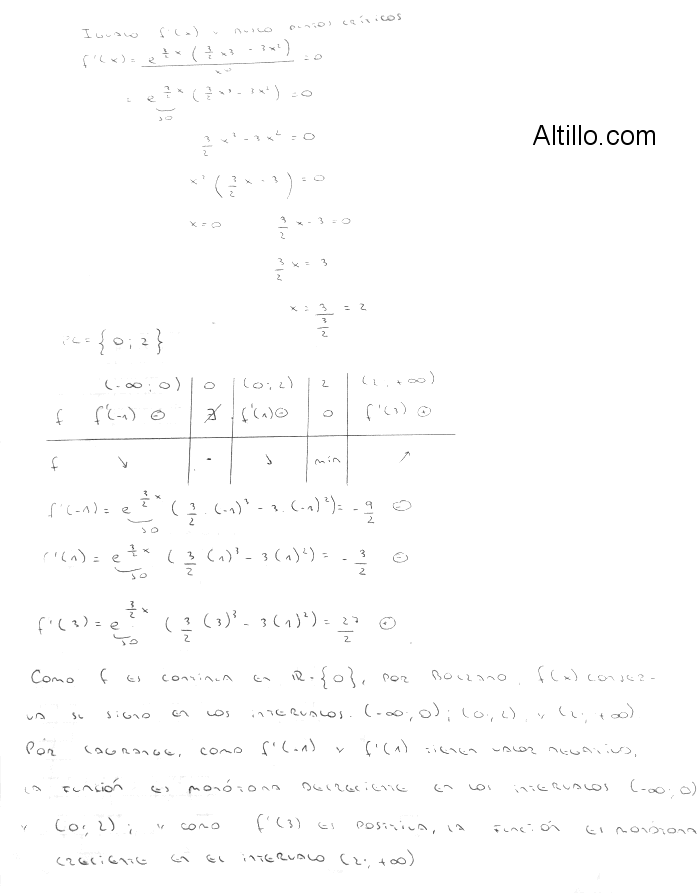 Igualo f'(x) y busco puntos críticos
f'(x) = e^{3/2 x} (3/2 x^3 - 3x^2) / x^6 = 0
= e^{3/2 x} (3/2 x^3 - 3x^2) = 0
>0
Altillo.com
3/2 x^3 - 3x^2 = 0
x^2 (3/2 x - 3) = 0
x = 0 3/2 x - 3 = 0
3/2 x = 3
x = 3 / (3/2) = 2
PC = {0; 2}
(-∞; 0) | 0 | (0; 2) | 2 | (2; +∞)
f f'(-1) ⊖ | ∄ | f'(1) ⊖ | 0 | f'(3) ⊕
f ↘ | - | ↘ | min | ↗
f'(-1) = e^{3/2 x} (3/2 . (-1)^3 - 3. (-1)^2) = - 9/2 ⊖
>0
f'(1) = e^{3/2 x} (3/2 (1)^3 - 3(1)^2) = - 3/2 ⊖
>0
f'(3) = e^{3/2 x} (3/2 (3)^3 - 3(1)^2) = 27/2 ⊕
>0
Como f es continua en R-{0}, por Bolzano, f(x) conser-
va su signo en los intervalos. (-∞; 0); (0; 2) y (2; +∞)
Por Lagrange, como f'(-1) y f'(1) tienen valor negativo,
la función es monótona decreciente en los intervalos (-∞; 0)
y (0; 2); y como f'(3) es positiva, la función es monótona
creciente en el intervalo (2; +∞)